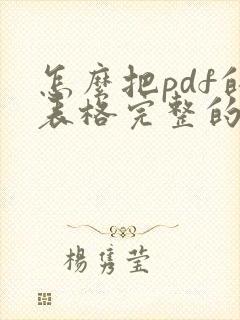 怎麼把pdf的
表格完整的
楊隽莹